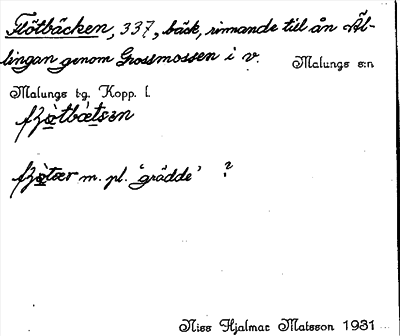 Flötbäcken, 337, bäck, rinnande till ån Äl-
lingan genom Grossmossen i v.
Malungs s:n
Malungs tg. Kopp. l.
m. pl. 'grädde' ?
Nils Hjalmar Matsson 1931